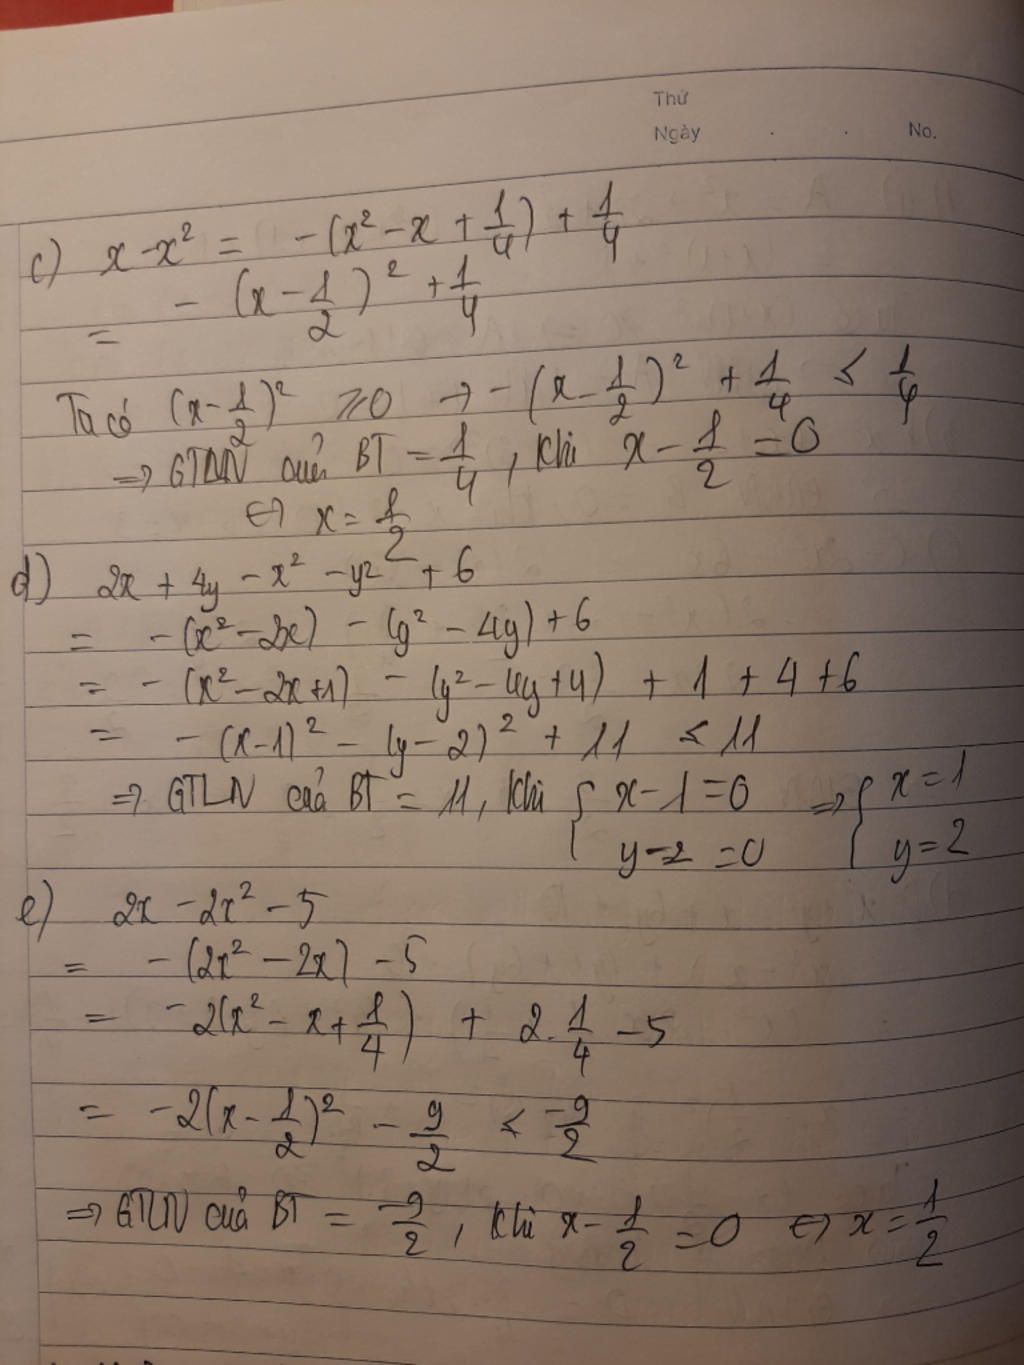 Thứ
Ngày . . No.
c) x - x² = -(x² - x + 1/4) + 1/4
= -(x - 1/2)² + 1/4
Ta có (x - 1/2)² ⩾ 0 → -(x - 1/2)² + 1/4 ≤ 1/4
=> GTLN của BT = 1/4, khi x - 1/2 = 0
<=> x = 1/2
d) 2x + 4y - x² - y² + 6
= -(x² - 2x) - (y² - 4y) + 6
= -(x² - 2x + 1) - (y² - 4y + 4) + 1 + 4 + 6
= -(x - 1)² - (y - 2)² + 11 ≤ 11
=> GTLN của BT = 11, khi { x - 1 = 0 => { x = 1
y - 2 = 0 y = 2
e) 2x - 2x² - 5
= -(2x² - 2x) - 5
= -2(x² - x + 1/4) + 2.1/4 - 5
= -2(x - 1/2)² - 9/2 ≤ -9/2
=> GTLN của BT = -9/2, khi x - 1/2 = 0 <=> x = 1/2